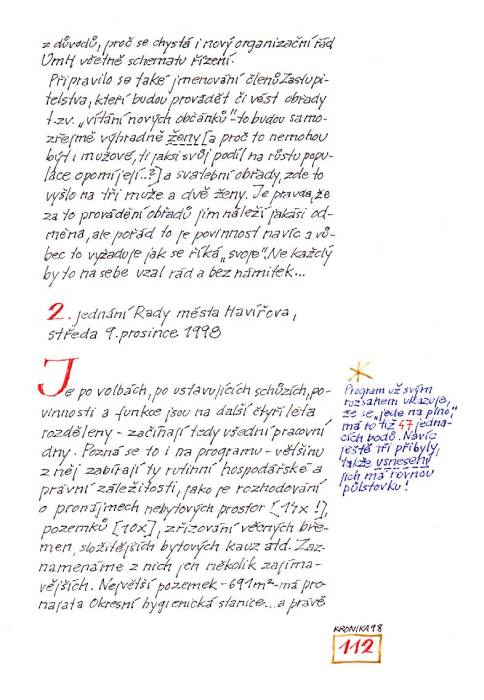 z důvodů, proč se chystá i nový organizační řád
ÚmH včetně schematu řízení.
Připravilo se také jmenování členů Zastupi-
telstva, kteří budou provádět či vést obřady
t.zv. „vítání nových občánků"- to budou samo-
zřejmě výhradně ženy [a proč to nemohou
být i mužové, ti jaksi svůj podíl na růstu popu-
lace opomíjejí..?] a svatební obřady, zde to
vyšlo na tři muže a dvě ženy. Je pravda, že
za to provádění obřadů jim náleží jakási od-
měna, ale pořád to je povinnost navíc a vů-
bec to vyžaduje jak se říká „svoje". Ne každý
by to na sebe vzal rád a bez námitek...
2. jednání Rady města Havířova,
středa 9. prosince 1998
Je po volbách, po ustavujících schůzích, po-
vinnosti a funkce jsou na další čtyři léta
rozděleny - začínají tedy všední pracovní
dny. Pozná se to i na programu - většinu
z něj zabírají ty rutinní hospodářské a
právní záležitosti, jako je rozhodování
o pronájmech nebytových prostor [14x!],
pozemků [10x], zřizování věcných bře-
men, složitějších bytových kauz atd. Zaz-
namenáme z nich jen několik zajíma-
vějších. Největší pozemek - 691m² - má pro-
najata Okresní hygienická stanice... a právě
Program už svým
rozsahem ukazuje,
že se „jede na plno",
má to tiž 47 jedna-
cích bodů. Navíc
ještě tři přibyly,
takže usnesení
jich má rovnou
půlstovku!
KRONIKA 98
112